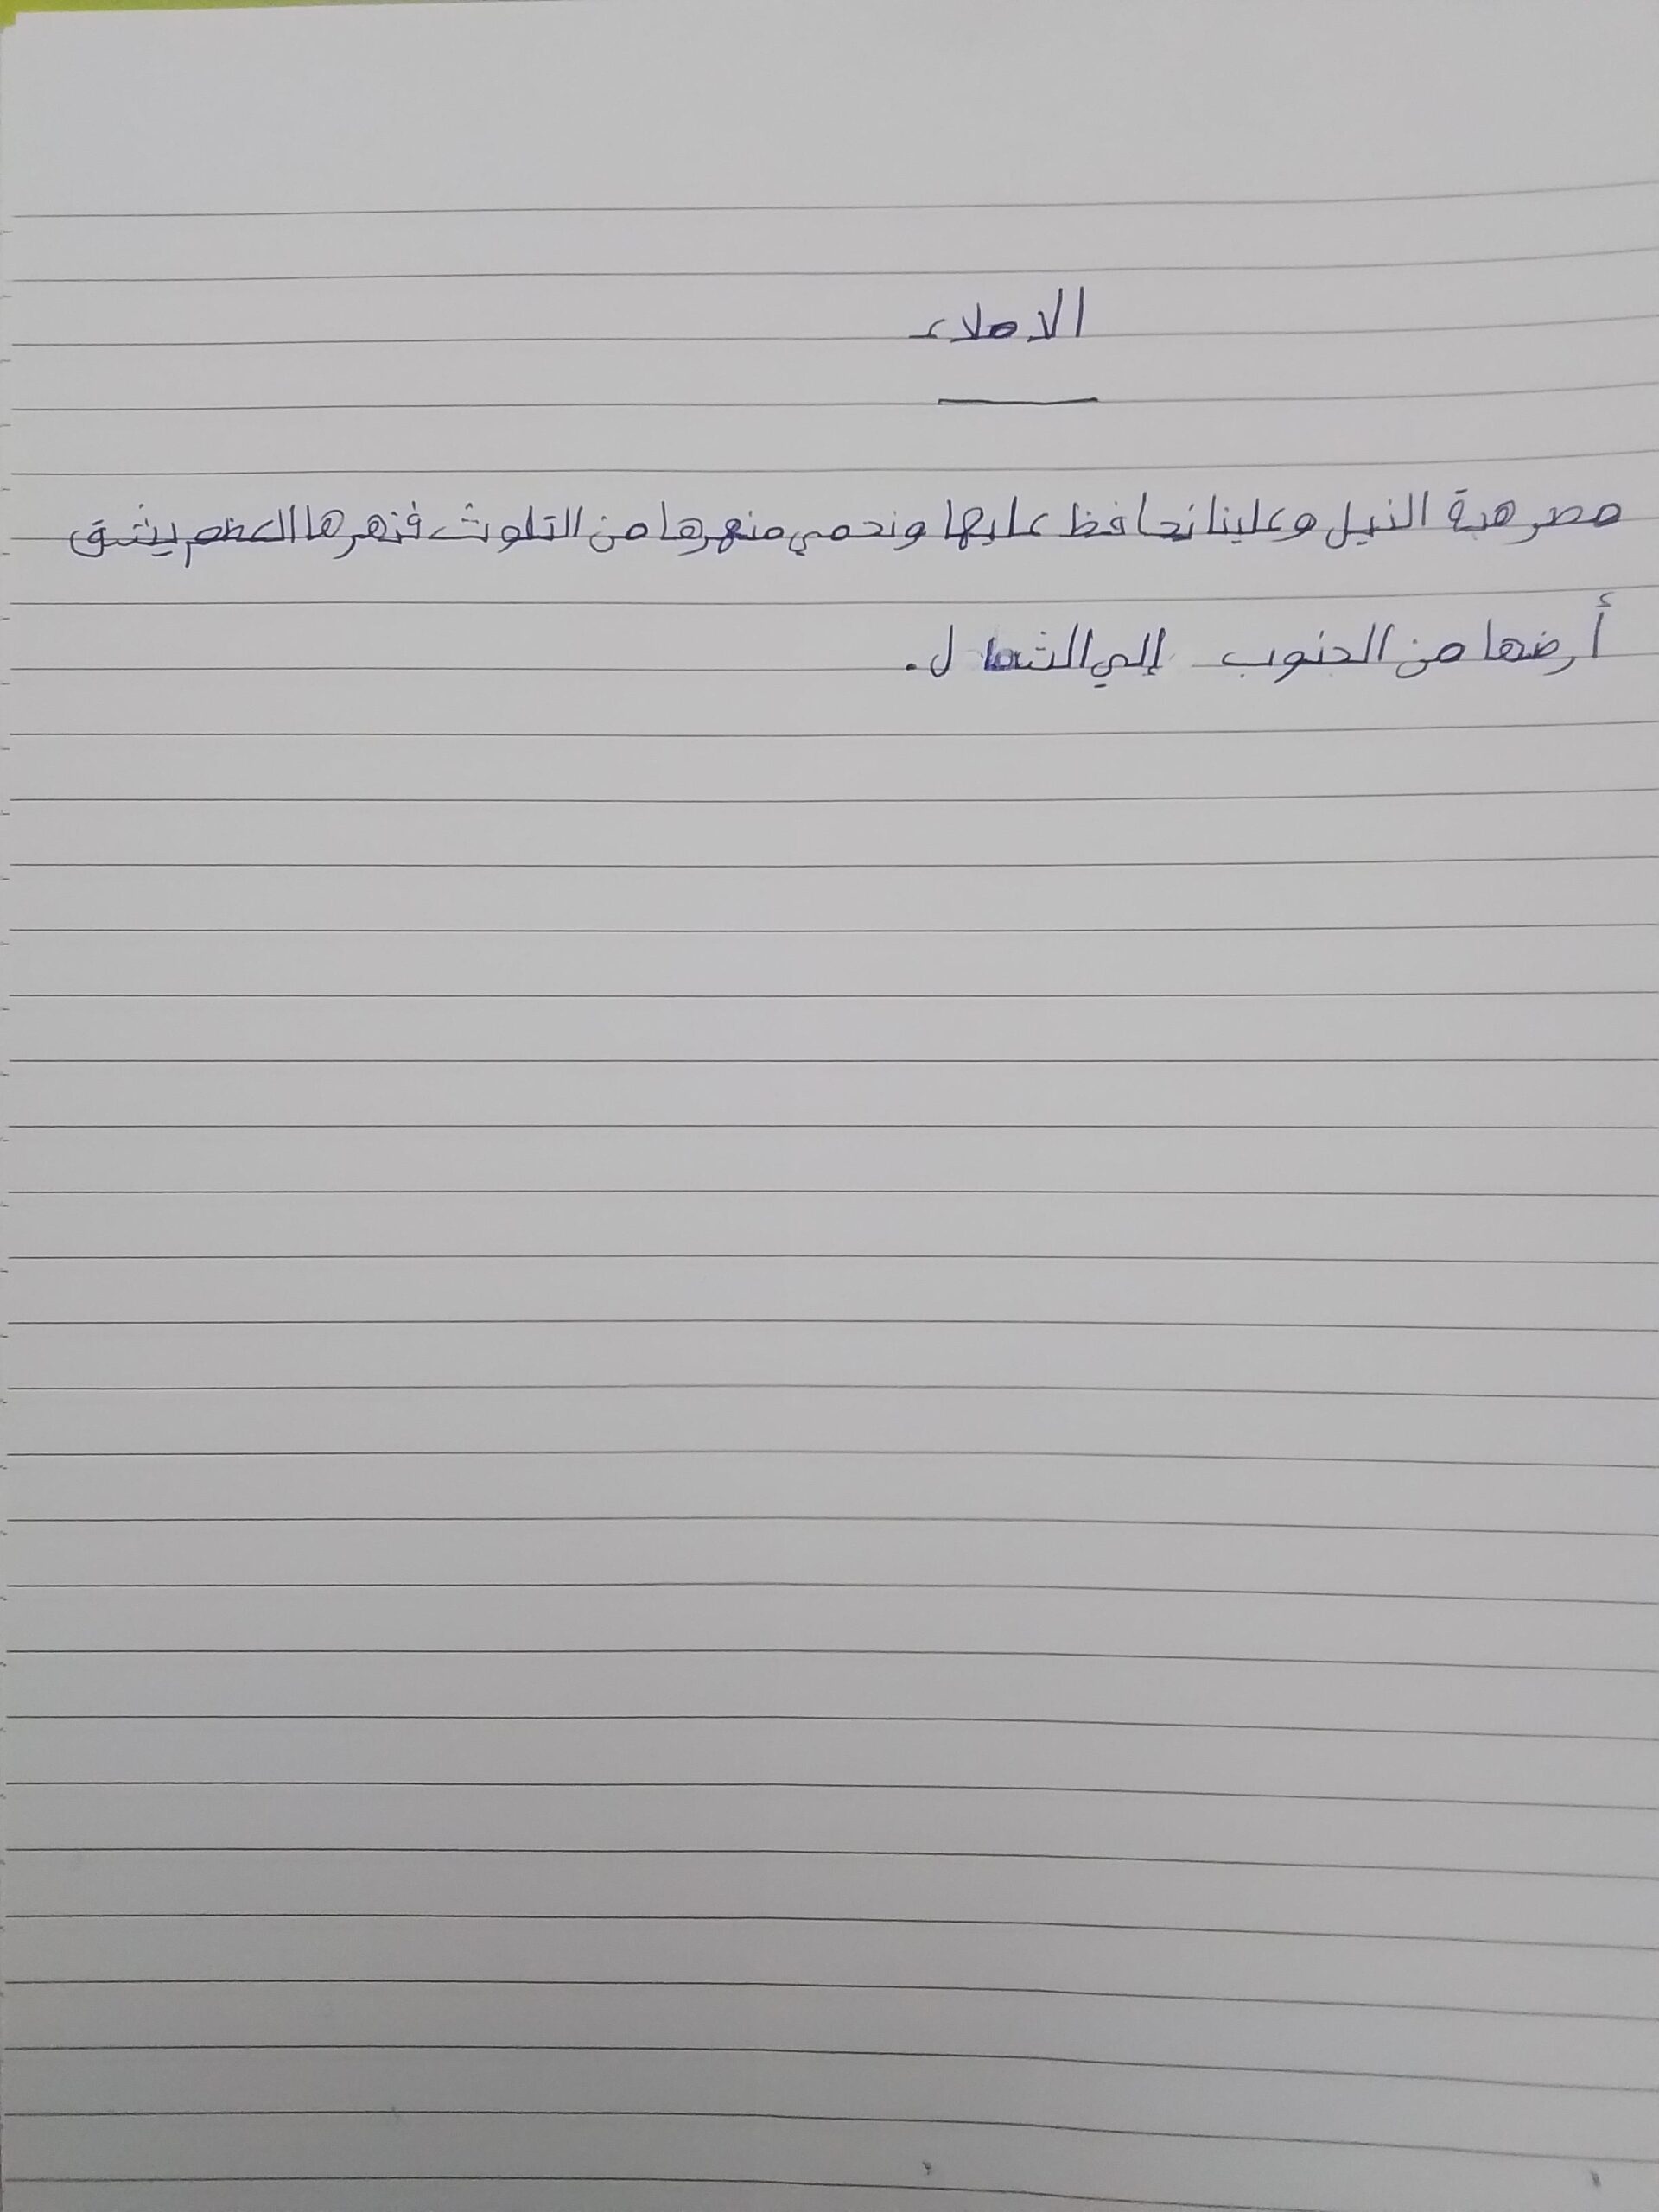 الاملاء
مصر هبة النيل وعلينا نحافظ عليها ونحمي منهرها من التلوث فنهرها العضم يشق
أرضها من الجنوب إلي الشمال.